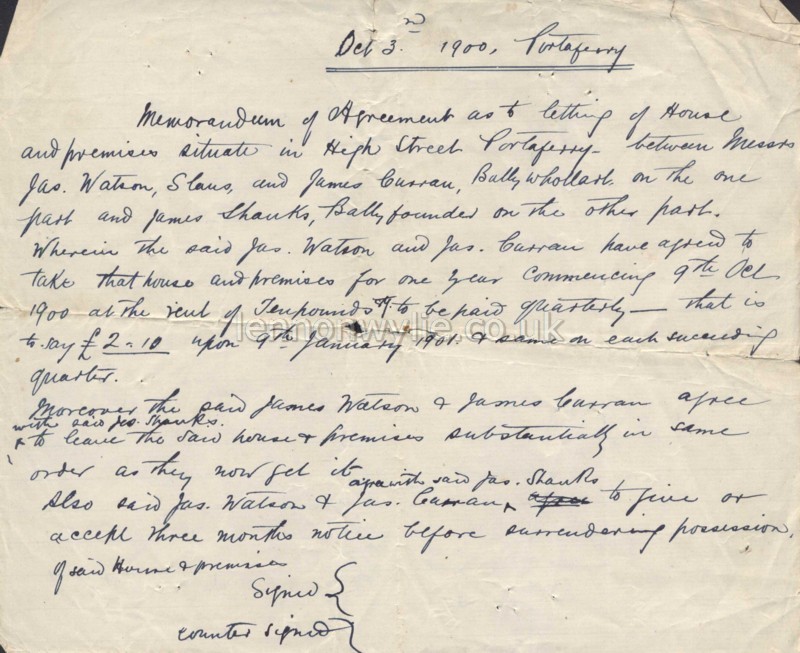 Oct 3rd 1900, Portaferry
Memorandum of Agreement as to letting of House
and premises situate in High Street Portaferry - between Messrs
Jas. Watson, Slans, and James Curran, Ballywhollart on the one
part and James Shanks, Ballyfounder on the other part.
Wherein the said Jas. Watson and Jas. Curran have agreed to
take that house and premises for one year commencing 9th Oct
1900 at the rent of Tenpounds to be paid quarterly - that is
to say £2-10 upon 9th January 1901. & same on each succeeding
quarter.
Moreover the said James Watson & James Curran agree
with said Jas. Shanks.
to leave the said house & premises substantially in same
order as they now get it
agree with said Jas. Shanks
Also said Jas. Watson & Jas. Curran agree to give or
accept three months notice before surrendering possession,
of said House & premises
Signed
counter signed
lennonwylie.co.uk